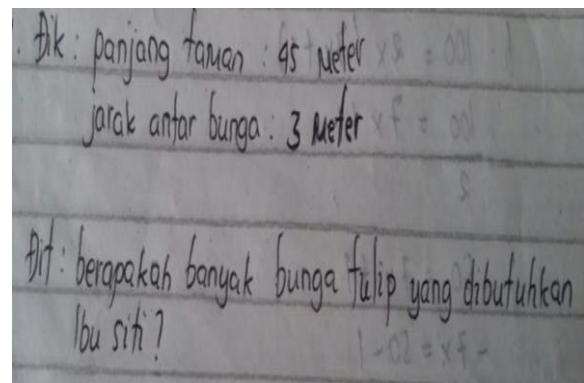 . Dik : panjang taman : 45 Meter
jarak antar bunga : 3 Meter
Dit : berapakah banyak bunga tulip yang dibutuhkan
Ibu siti ?